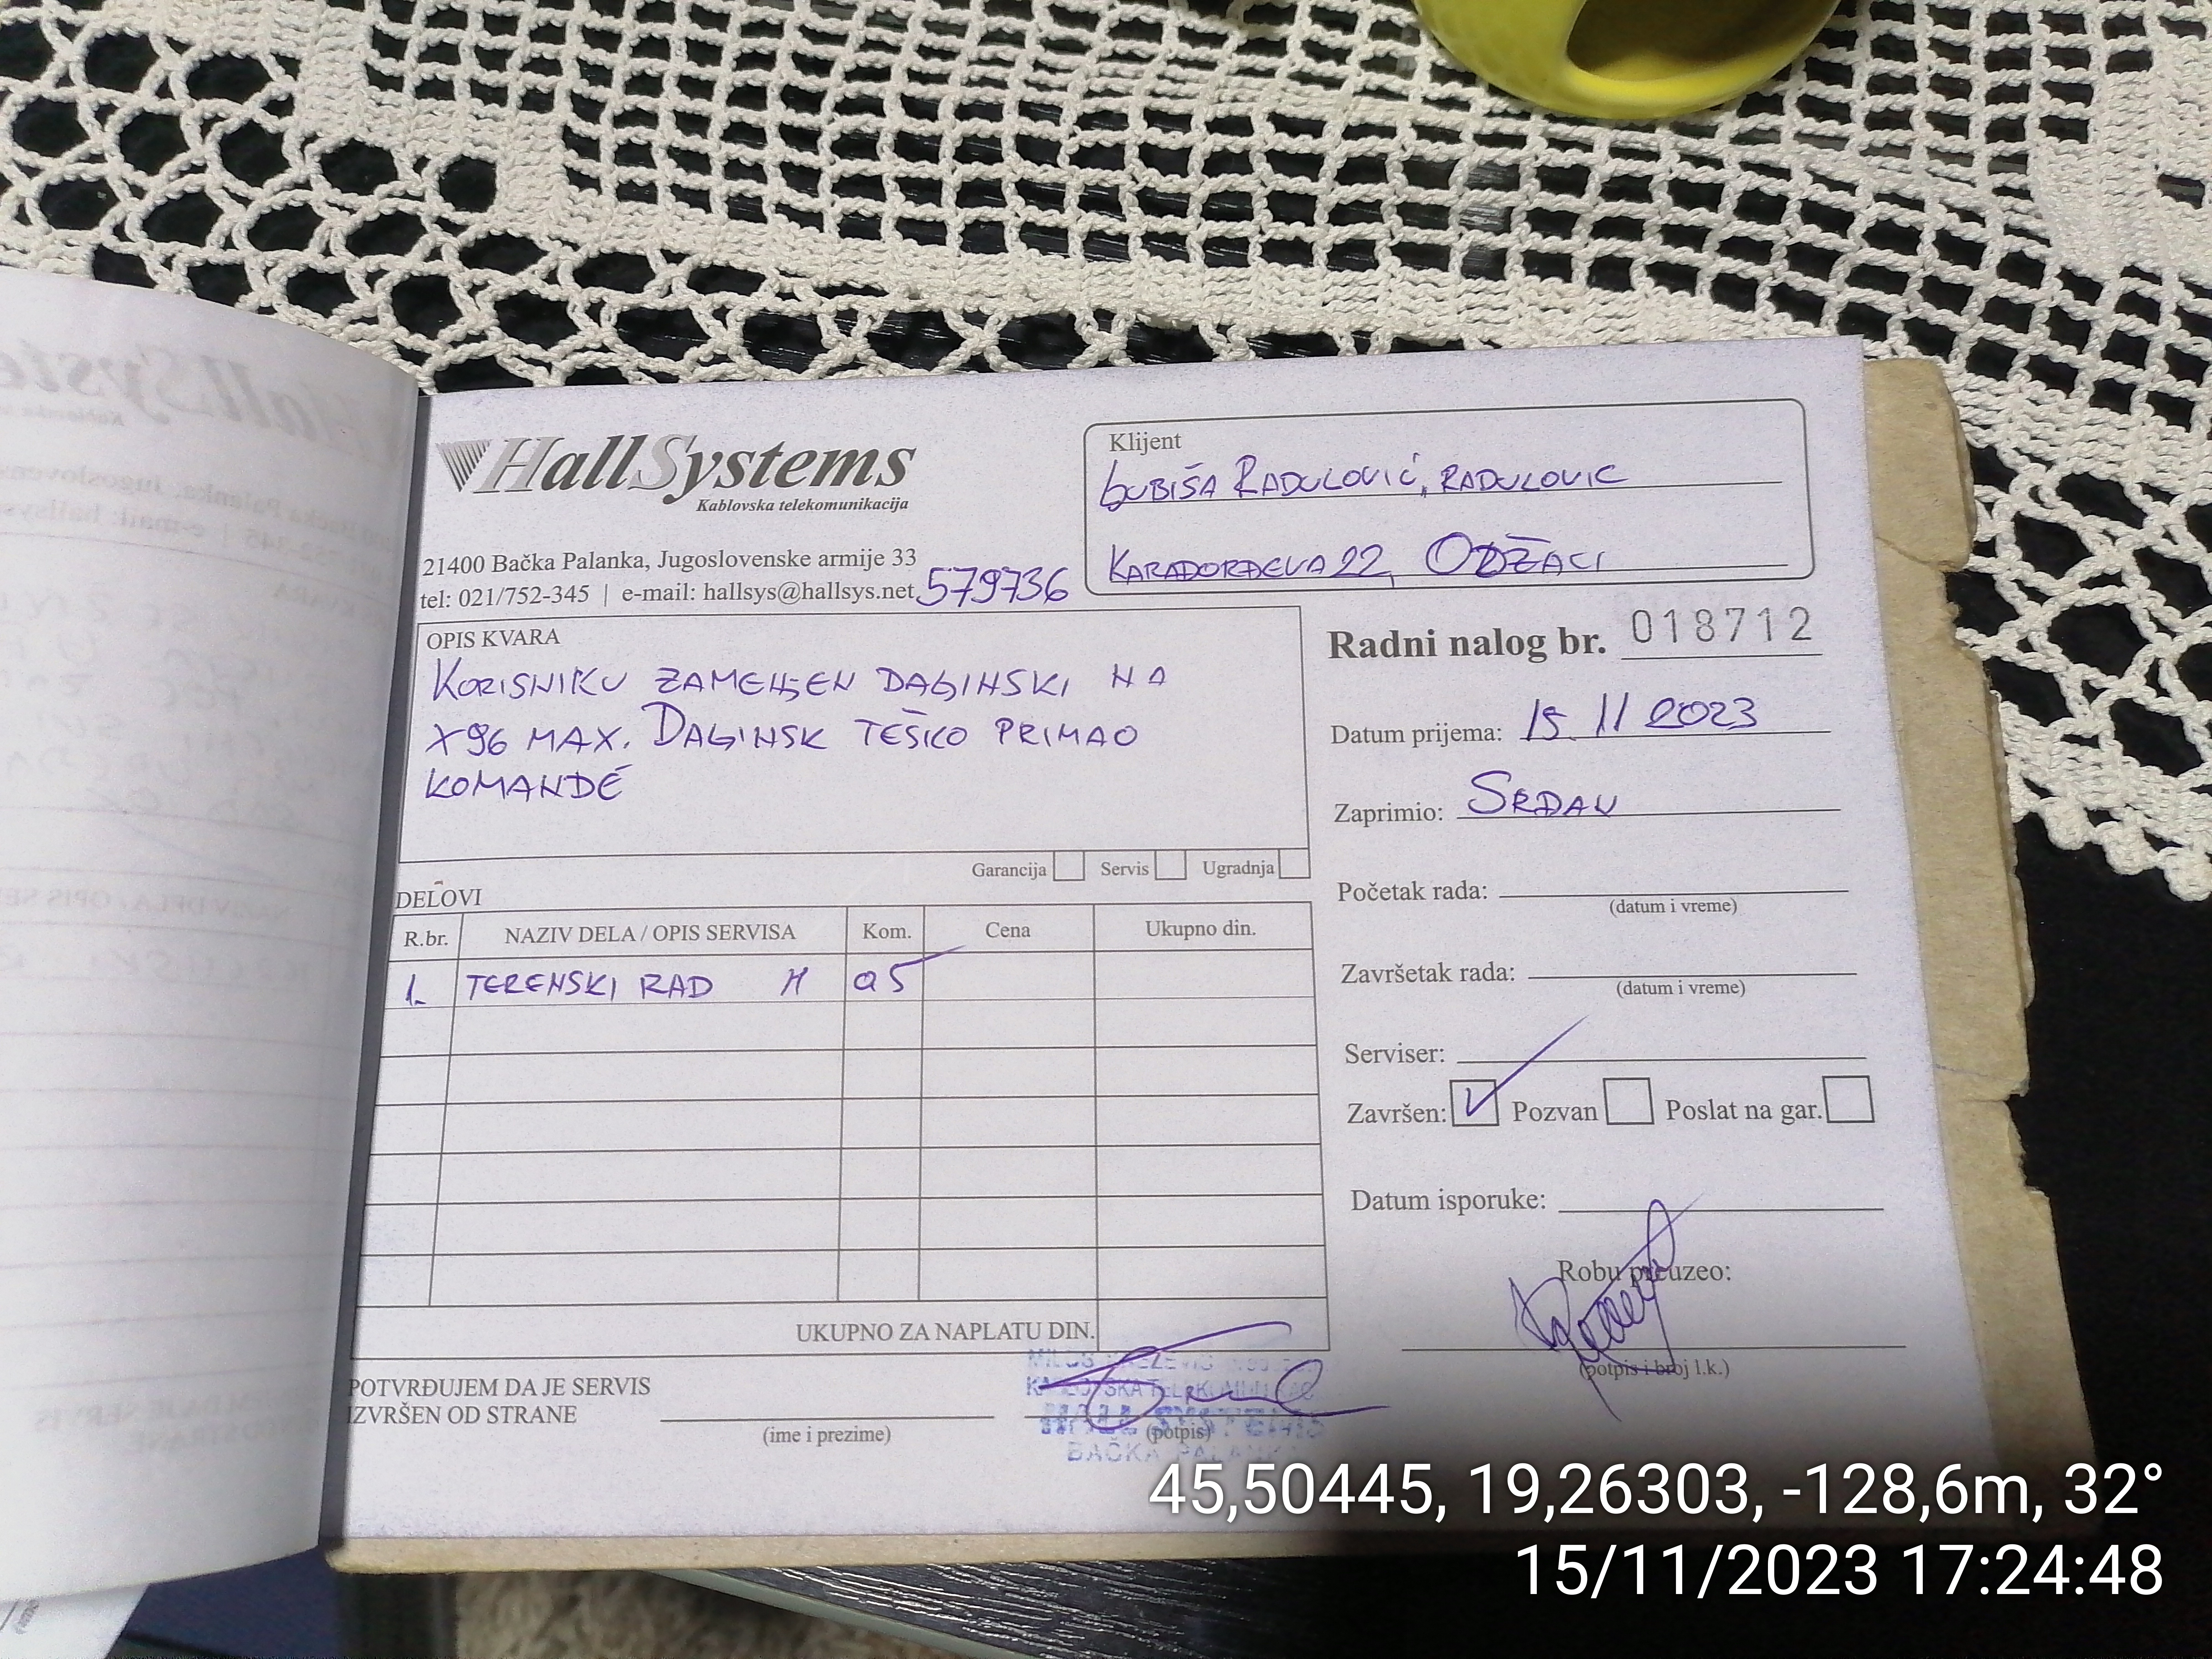 HallSystems
Kablovska telekomunikacija
21400 Bačka Palanka, Jugoslovenske armije 33
tel: 021/752-345 | e-mail: hallsys@hallsys.net
579736
Klijent
LJUBIŠA RADULOVIĆ, RADULOVIC
KARAĐORĐEVA 22, ODŽACI
OPIS KVARA
KORISNIKU ZAMENJEN DALJINSKI NA
X96 MAX. DALJINSK TEŠKO PRIMAO
KOMANDE
Garancija Servis Ugradnja
Radni nalog br. 018712
Datum prijema: 15. 11 2023
Zaprimio: SRĐAN
Početak rada:
(datum i vreme)
Završetak rada:
(datum i vreme)
Serviser:
Završen: Pozvan Poslat na gar.
Datum isporuke:
Robu preuzeo:
(potpis i broj l.k.)
DELOVI
R.br. NAZIV DELA / OPIS SERVISA Kom. Cena Ukupno din.
1. TERENSKI RAD H 05
UKUPNO ZA NAPLATU DIN.
POTVRĐUJEM DA JE SERVIS
IZVRŠEN OD STRANE
(ime i prezime)
(potpis)
HALL SYSTEMS
BAČKA PALANKA
45,50445, 19,26303, -128,6m, 32°
15/11/2023 17:24:48